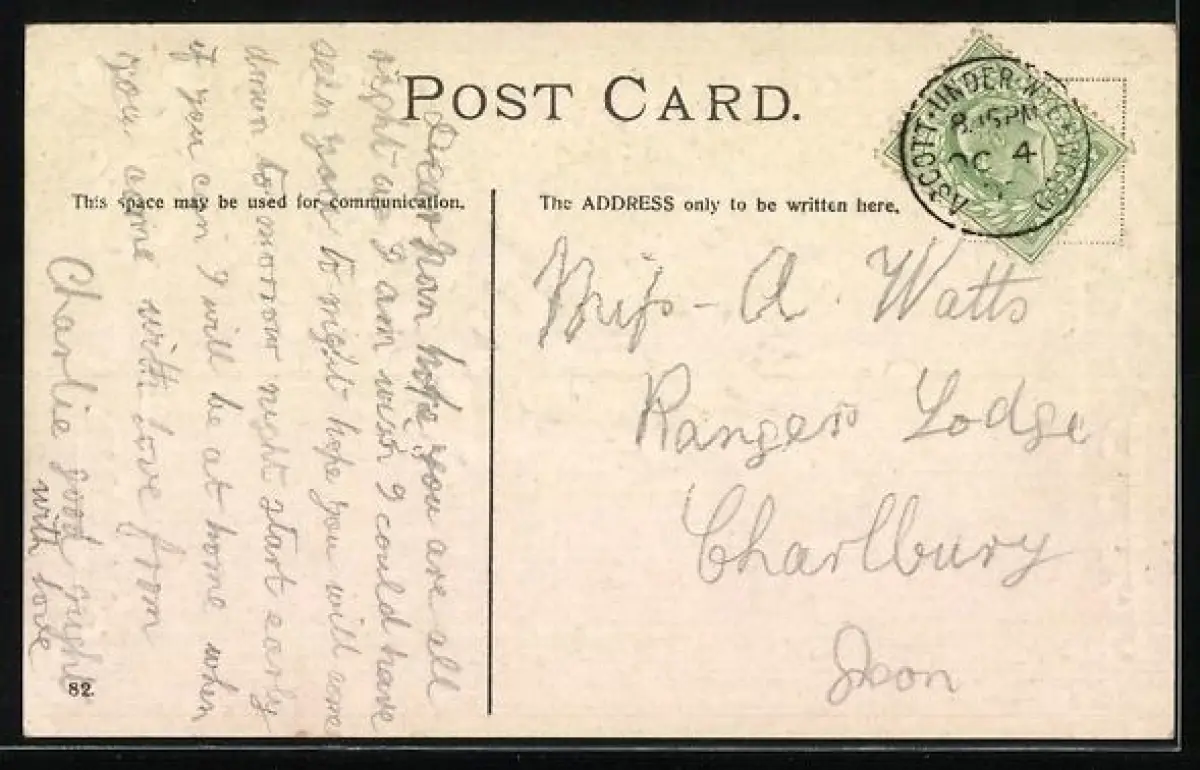 POST CARD.
This space may be used for communication.
The ADDRESS only to be written here.
ASCOTT-UNDER-WYCHWOOD
8.15PM
OC 4
Miss - A. Watts
Rangers Lodge
Charlbury
Oxon
Dear Nan hope you are all
right as I am wish I could have
seen you to night hope you will come
down to morrow night start early
if you can I will be at home when
you come with love from
Charlie good night
with love
82.